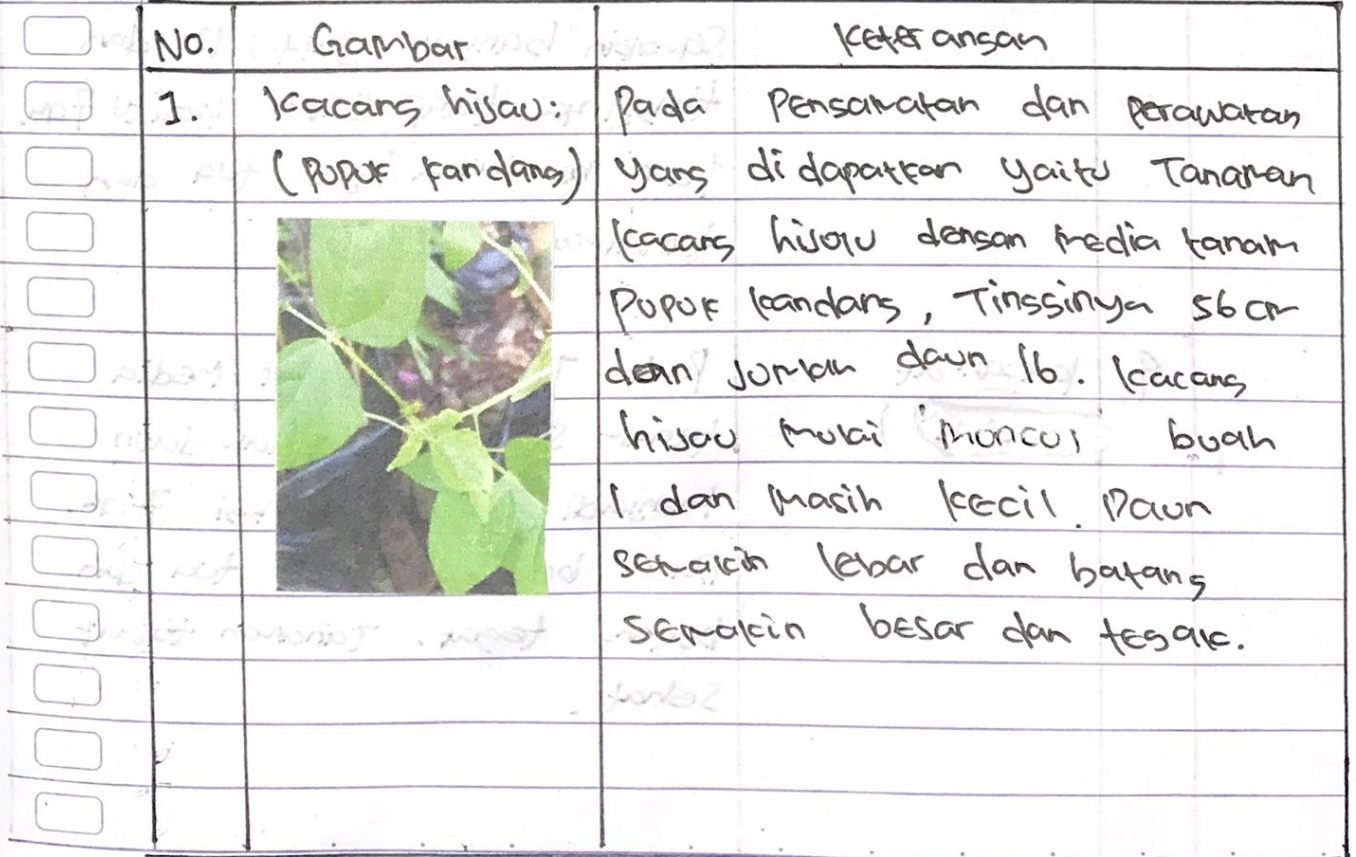 No. Gambar Keterangan
1. Kacang hijau:
(pupuk kandang)
Pada Pengamatan dan perawatan
yang didapatkan yaitu Tanaman
kacang hijau dengan media tanam
pupuk kandang, Tingginya 56 cm
dan jumlah daun 16. kacang
hijau mulai muncul buah
1 dan masih kecil. Daun
semakin lebar dan batang
semakin besar dan tegak.